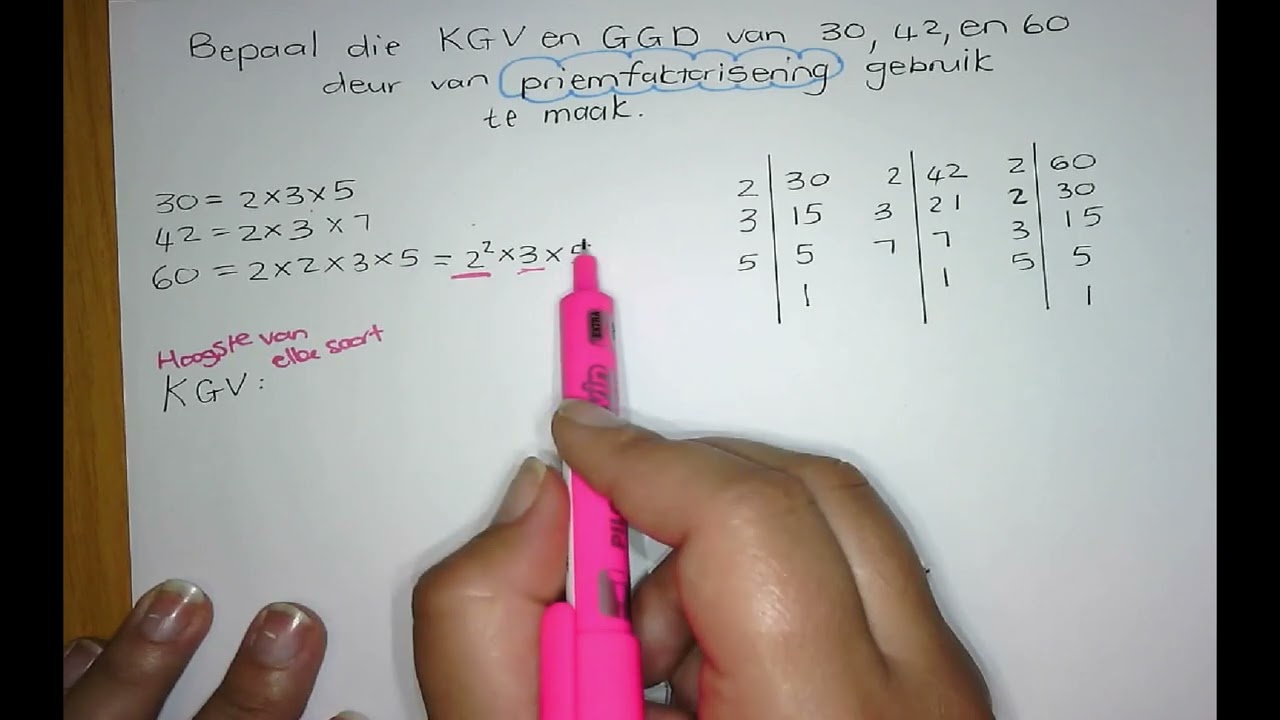 Bepaal die KGV en GGD van 30, 42, en 60
deur van priemfaktorisering gebruik
te maak.
30 = 2×3×5
42 = 2×3×7
60 = 2×2×3×5 = 2²×3×5
Hoogste van
elke soort
KGV:
2 | 30
3 | 15
5 | 5
1
2 | 42
3 | 21
7 | 7
1
2 | 60
2 | 30
3 | 15
5 | 5
1
EXTRA